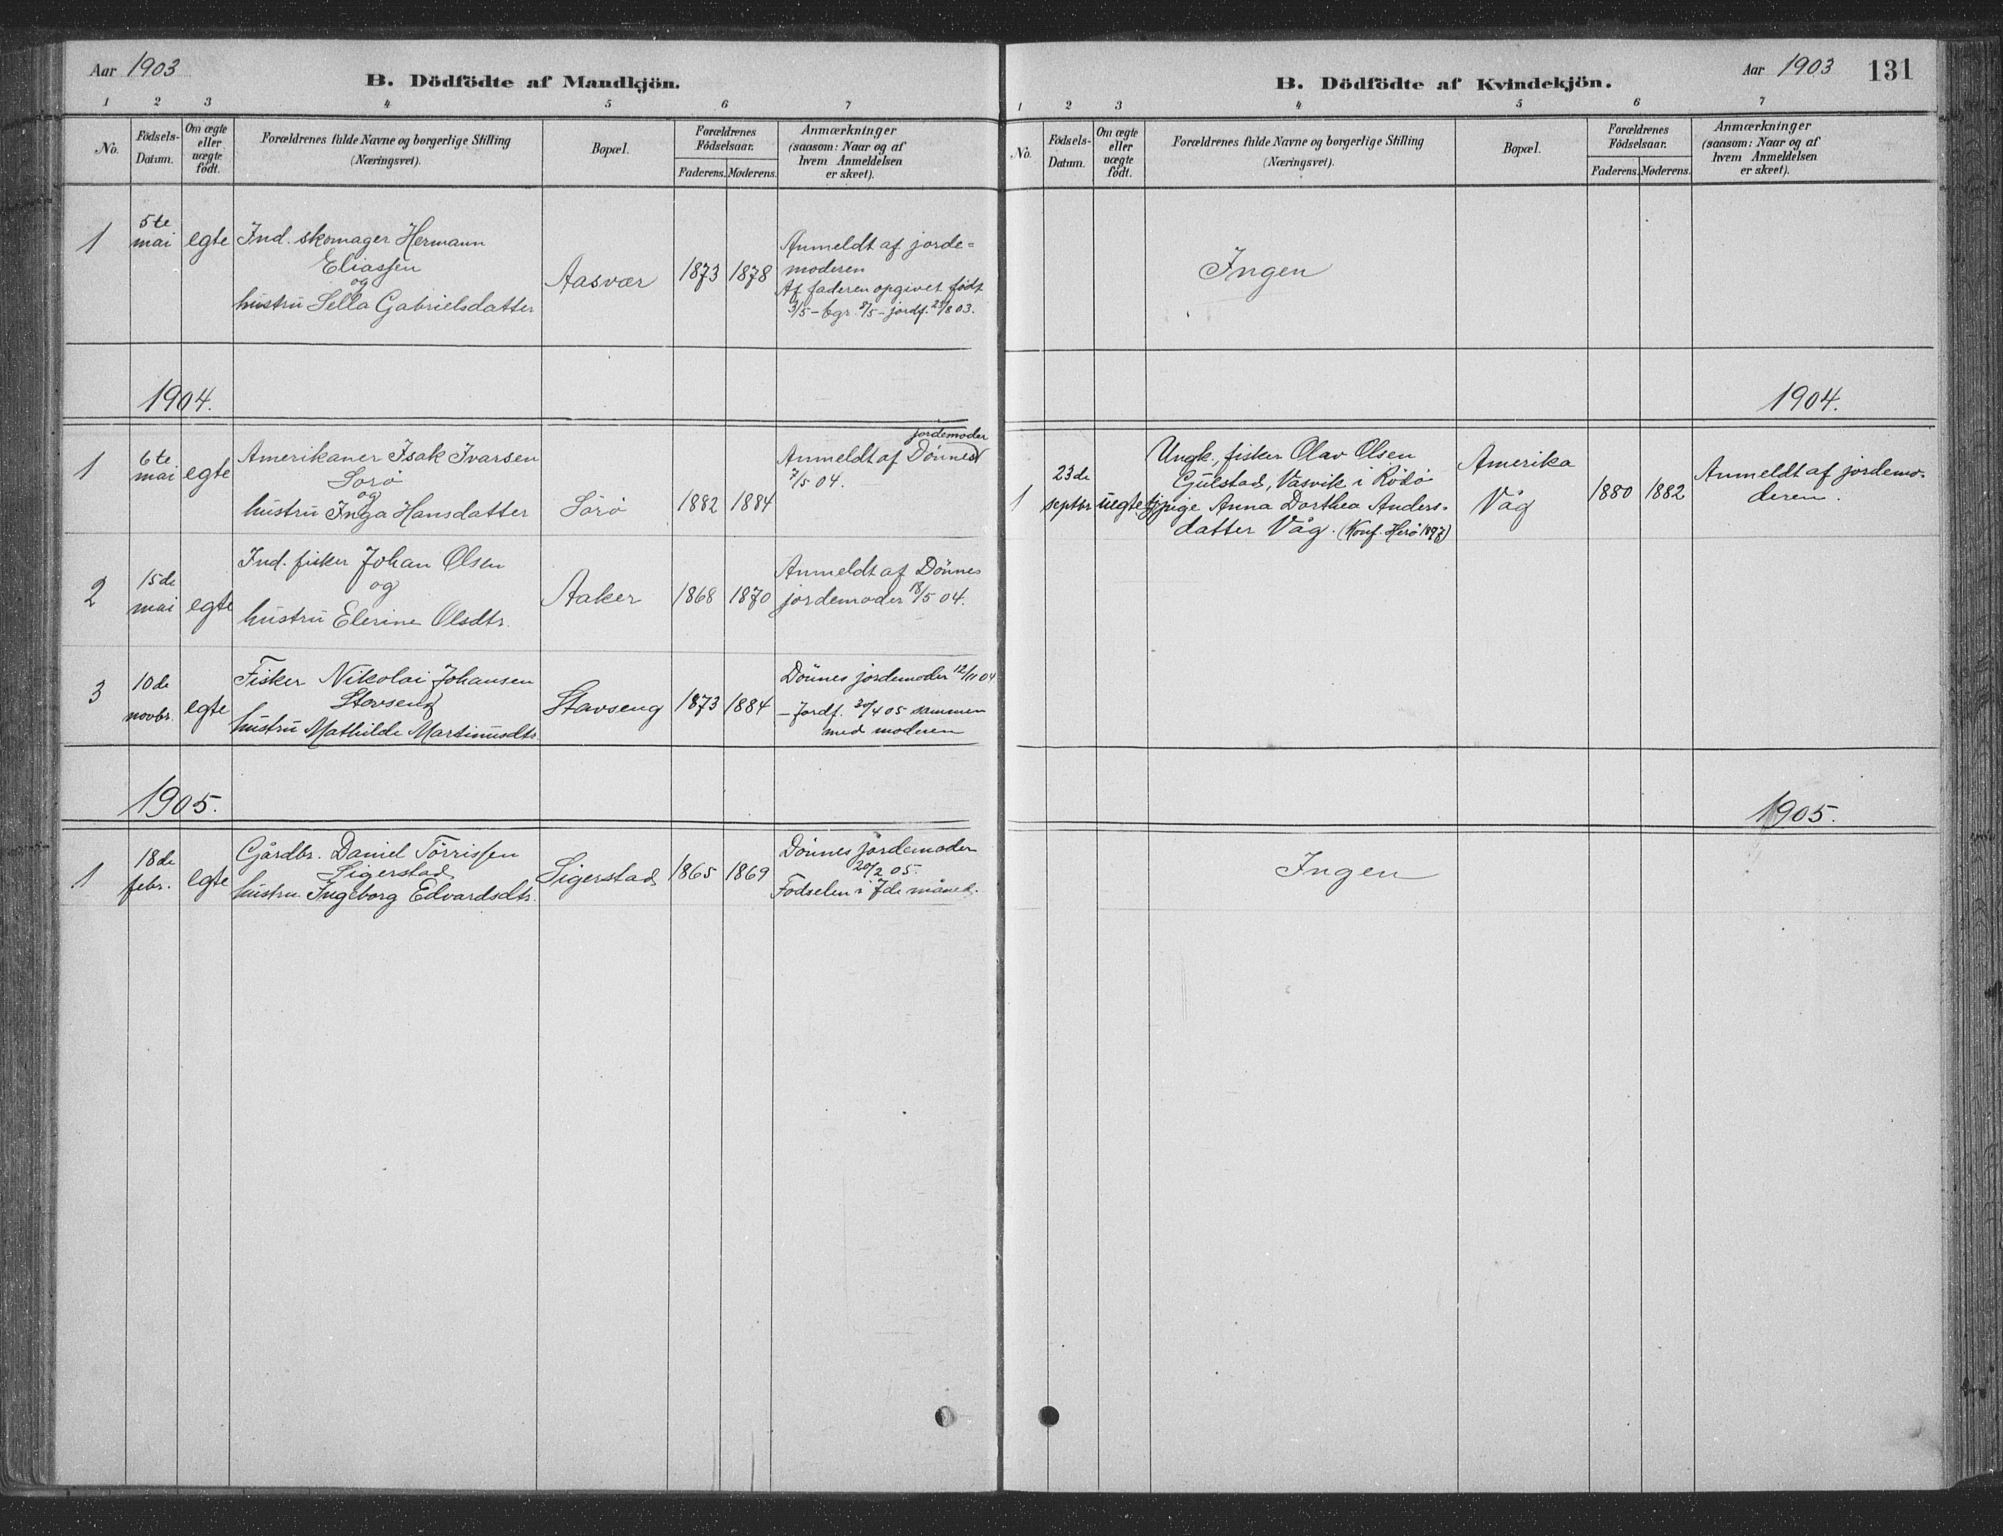 Aar 1903
B. Dödfödte af Mandkjön.
1 2 3 4 5 6 7
No.
Födsels-
Datum.
Om ægte
eller
uægte
födt.
Forældrenes fulde Navne og borgerlige Stilling
(Næringsvei).
Bopæl.
Forældrenes
Födselsaar.
Faderens. Moderens.
Anmærkninger
(saasom: Naar og af
hvem Anmeldelsen
er skeet).
1
5te
mai
egte
Ind. skomager Hermann
Eliassen
og
hustru Sella Gabrielsdatter
Aasvær
1873 1878
Anmeldt af jorde-
moderen
Af faderen opgivet født
3/5 - bgr. 8/5 - jordf. 23/8 03.
1904.
1
6te
mai
egte
Amerikaner Isak Ivarsen
Sørø
og
hustru Inga Hansdatter
Sørø
1882 1884
jordemoder
Anmeldt af Dönnes
7/5 04.
2
15de
mai
egte
Ind. fisker Johan Olsen
og
hustru Elerine Olsdtr.
Aaker
1868 1870
Anmeldt af Dönnes
jordemoder 18/5 04.
3
10de
novbr.
egte
Fisker Nikolai Johansen
Stavseng
hustru Mathilde Martinusdtr.
Stavseng
1873 1884
Dönnes jordemoder 12/11 04
- Jordf. 20/4 05 sammen
med moderen
1905.
1
18de
febr.
egte
Gårdbr. Daniel Törrissen
Sigerstad
hustru Ingeborg Edvardsdtr.
Sigerstad
1865 1869
Dönnes jordemoder
20/2 05.
Fødselen i 7de måned.
Aar 1903 131
B. Dödfödte af Kvindekjön.
1 2 3 4 5 6 7
No.
Födsels-
Datum.
Om ægte
eller
uægte
födt.
Forældrenes fulde Navne og borgerlige Stilling
(Næringsvei).
Bopæl.
Forældrenes
Födselsaar.
Faderens. Moderens.
Anmærkninger
(saasom: Naar og af
hvem Anmeldelsen
er skeet).
Ingen
1904.
1
23de
septbr.
uegte
Ungk., fisker Olav Olsen
Gulstad, Vasvik i Rødø
tjpige Anna Dorthea Anders-
datter Våg. (Konf. Herø 1897)
Amerika
Våg
1880 1882
Anmeldt af jordemo-
deren.
1905.
Ingen